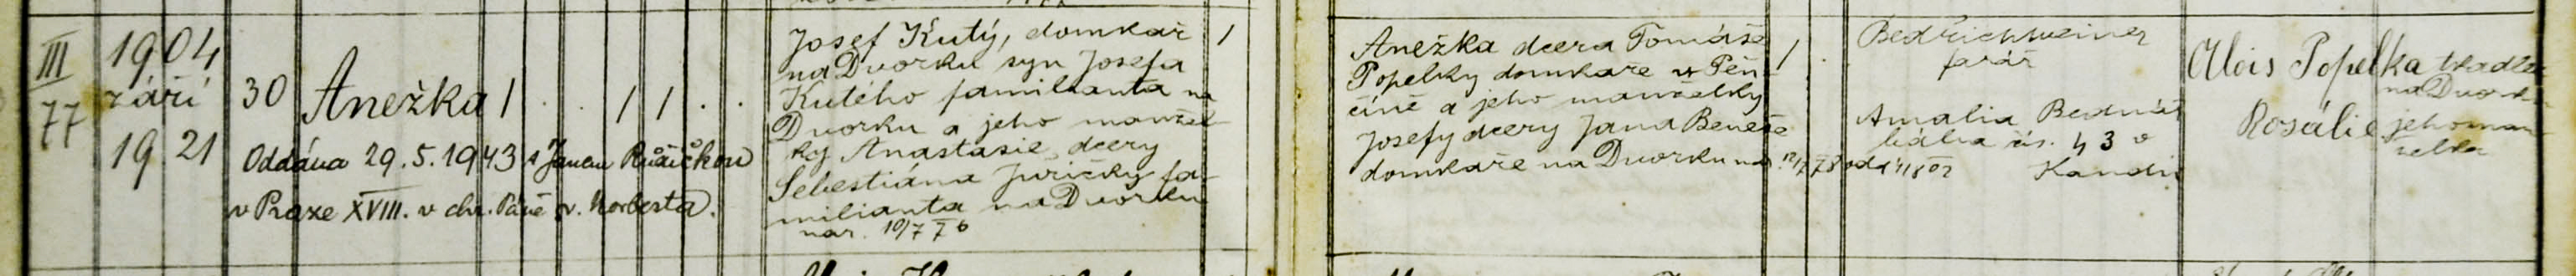 III
77
1904
září
19 21
30
Anežka
Oddána 29.5.1943 s Janem Růžičkou
v Praze XVIII. v chr. Páně sv. Norberta.
Josef Kutý, domkář
na Dvorku syn Josefa
Kutého familianta na
Dvorku a jeho manžel-
ky Anastasie, dcery
Šebestiána Juřičky fa-
milianta na Dvorku
nar. 10/7 76
Anežka dcera Tomáše
Popelky domkaře v Pěn-
číně a jeho manželky
Josefy dcery Jana Beneše
domkaře na Dvorku nar.
Bedřich Weiner
farář
Amalia Bednář
bába čís. 43 v
Kandii
Alois Popelka tkadlec
na Dvorku
Rosálie jeho man-
želka